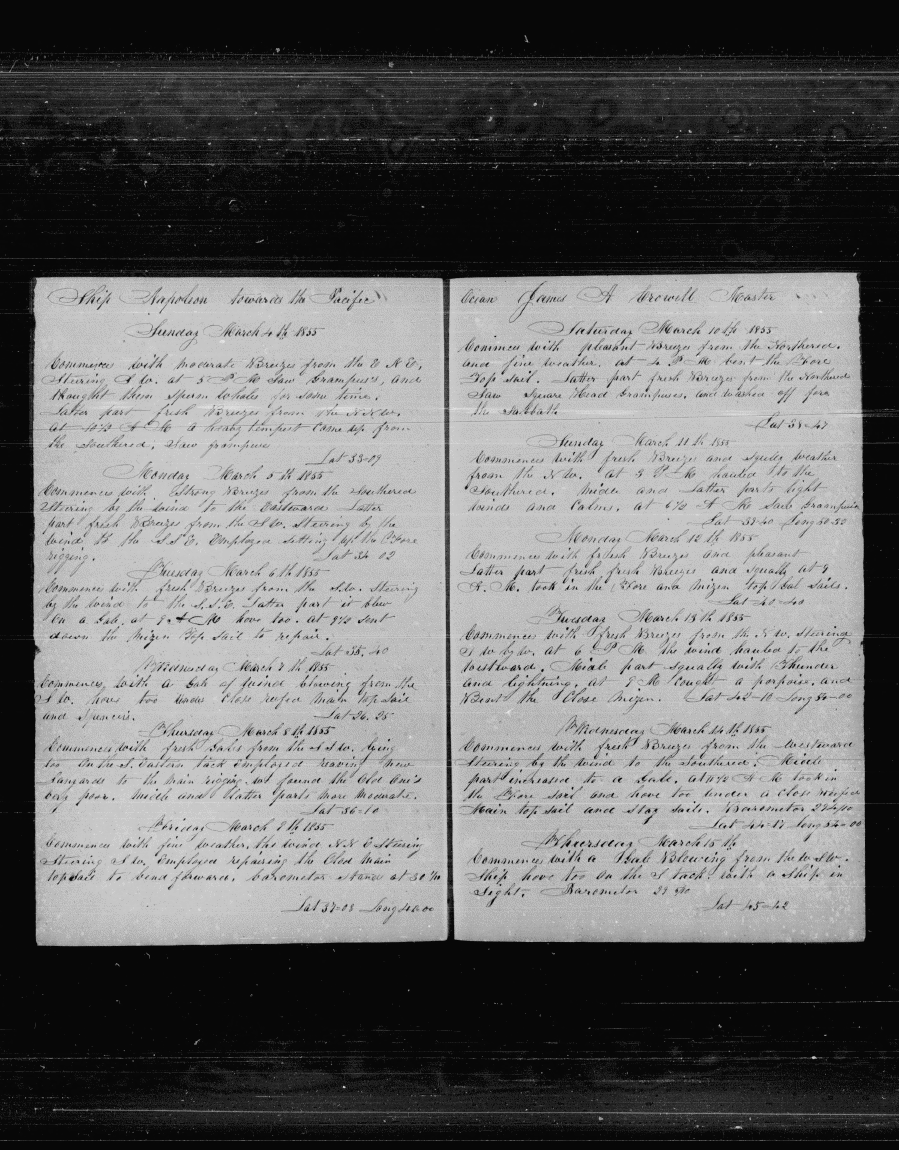 Ship Napoleon towards the Pacific
Sunday March 4th 1855
Commences with moderate Breezes from the E N E,
Steering S W. at 5 P M Saw Grampuses, and
thought them Sperm Whales for some time.
Latter part fresh Breezes from the N.N.W.
at 10½ A M a heavy tempest come up from
the Southered. Saw grampuses
Lat 33=09
Monday March 5th 1855
Commences with Strong Breezes from the Southered
Steering by the wind to the Eastward Latter
part fresh Breezes from the S.W. Steering by the
wind to the S.S.E. Employed Setting up the Fore
rigging. Lat 34 02
Tuesday March 6th 1855
Commences with fresh Breezes from the S.W. Steering
by the wind to the S.S.E. Latter part it blew
on a Gale, at 9 A M hove too. at 9½ sent
down the Mizen Top Sail to repair.
Lat 35=40
Wednesday March 7th 1855
Commences with a Gale of wind blowing from the
S W. hove too under Close reefed main top sail
and Spencers. Lat 36.25
Thursday March 8th 1855
Commences with fresh Gales from the S S W. lying
too on the S. Eastern tack Employed reaving new
Lanyards to the Main rigging. we found the Old One's
very poor. Middle and Latter parts more Moderate.
Lat 36=10
Friday March 9th 1855
Commences with fine weather, the wind N.N.E Steering
Steering S W. Employed repairing the Old Main
topsail to bend forward. barometer stands at 30
Lat 37=03 Long 48=00
Ocean James A Crowell Master
Saturday March 10th 1855
Cominces with pleasant Breezes from the Northered.
and fine weather. at 4 P M bent the Fore
Top Sail. Latter part fresh Breezes from the Northered
Saw Square Head Grampuses. and washed off for
the Sabbath.
Lat 38=47
Sunday March 11th 1855
Commences with fresh Breezes and Squly weather
from the N W. at 3 P M hauled to the
Southered. Midle and Latter parts light
winds and Calms. at 6½ A M Saw Grampuses
Lat 39 40 Long 50=30
Monday March 12th 1855
Commences with fresh Breezes and pleasant
Latter part fresh fresh Breezes and Squaly at 9
A. M. took in the Fore and Mizen top Gal Sails.
Lat 40=40
Tuesday March 13th 1855
Commences with fresh Breezes from the N W Steering
S W by W. at 6 P M the wind hauled to the
Westward. Midle part Squally with Thunder
and lightning, at 8 M caught a porpoise, and
Bent the Close Mizen. Lat 42=10 Long 50=00
Wednesday March 14th 1855
Commences with fresh Breezes from the Westward
Steering by the wind to the Southered. Midle
part increased to a Gale. at 10½ A M took in
the Fore Sail and hove too under a Close reefed
Main top sail and Stay Sails. Barometer 29
Lat 44=17 Long 54=00
Thursday March 15 th
Commences with a Gale Blowing from the W S W.
Ship hove too on the S tack with a Ship in
Sight. Barometer 29
Lat 45=42